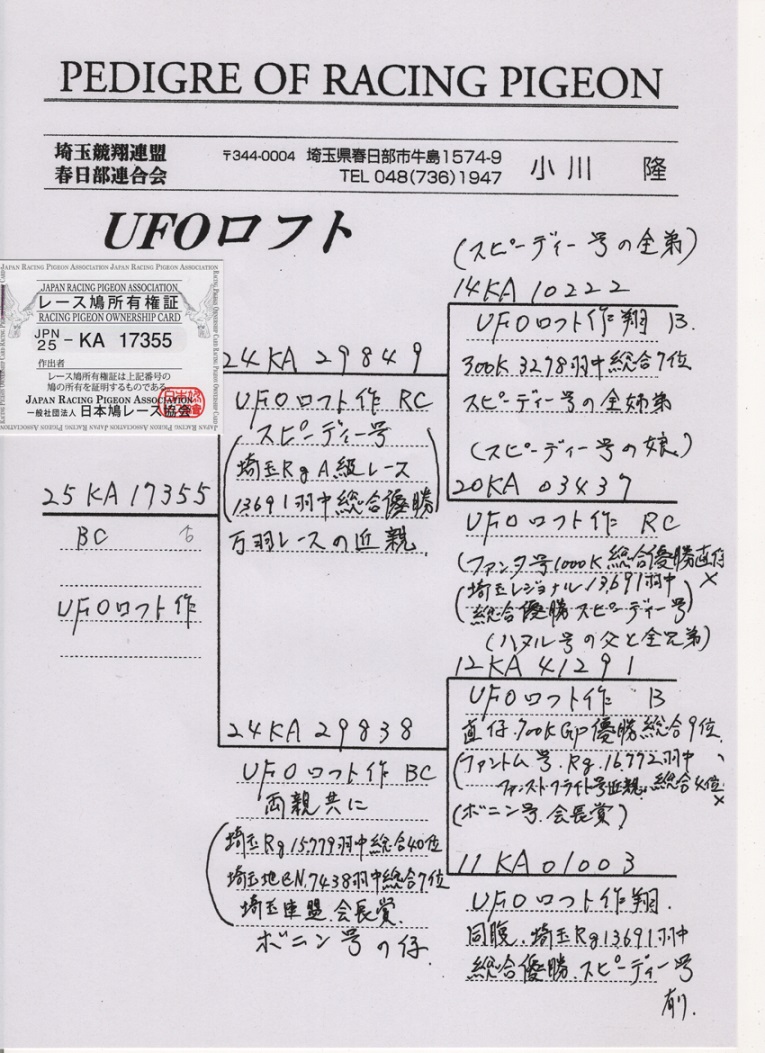 PEDIGRE OF RACING PIGEON
埼玉競翔連盟
春日部連合会
〒344-0004 埼玉県春日部市牛島1574-9
TEL 048(736)1947
小川 隆
UFOロフト
JAPAN RACING PIGEON ASSOCIATION JAPAN RACING PIGEON ASSOCIATION
JAPAN RACING PIGEON ASSOCIATION
レース鳩所有権証
RACING PIGEON OWNERSHIP CARD
JPN
25 - KA 17355
作出者
レース鳩所有権証は上記番号の
鳩の所有を証明するものである
JAPAN RACING PIGEON ASSOCIATION
一般社団法人 日本鳩レース協会
25KA17355
BC ♁
UFOロフト作
24KA 29849
UFOロフト作 RC
スピーディー号
埼玉Rg A級レース
13691羽中総合優勝
万羽レースの近親
24KA 29838
UFOロフト作 BC
両親共に
埼玉Rg.15,779羽中総合40位
埼玉地区N.7438羽中総合7位
埼玉連盟.会長賞.
ボニン号の仔.
(スピーディー号の全弟)
14KA 10222
UFOロフト作翔 B.
300K.3278羽中総合7位
スピーディー号の全姉弟
(スピーディー号の娘)
20KA 03437
UFOロフト作 RC
(ファンタ号1000K総合優勝直仔
×
(埼玉レジョナル13,691羽中
総合優勝スピーディー号)
(ハヌル号の父と全兄弟)
12KA 41291
UFOロフト作 B
直仔.700KGp優勝総合9位.
(ファントム号.Rg.16,772羽中
ファストフライト号近親.総合4位
×
(ボニン号.会長賞)
11KA01003
UFOロフト作翔.
同腹.埼玉Rg13691羽中
総合優勝.スピーディー号
有り.